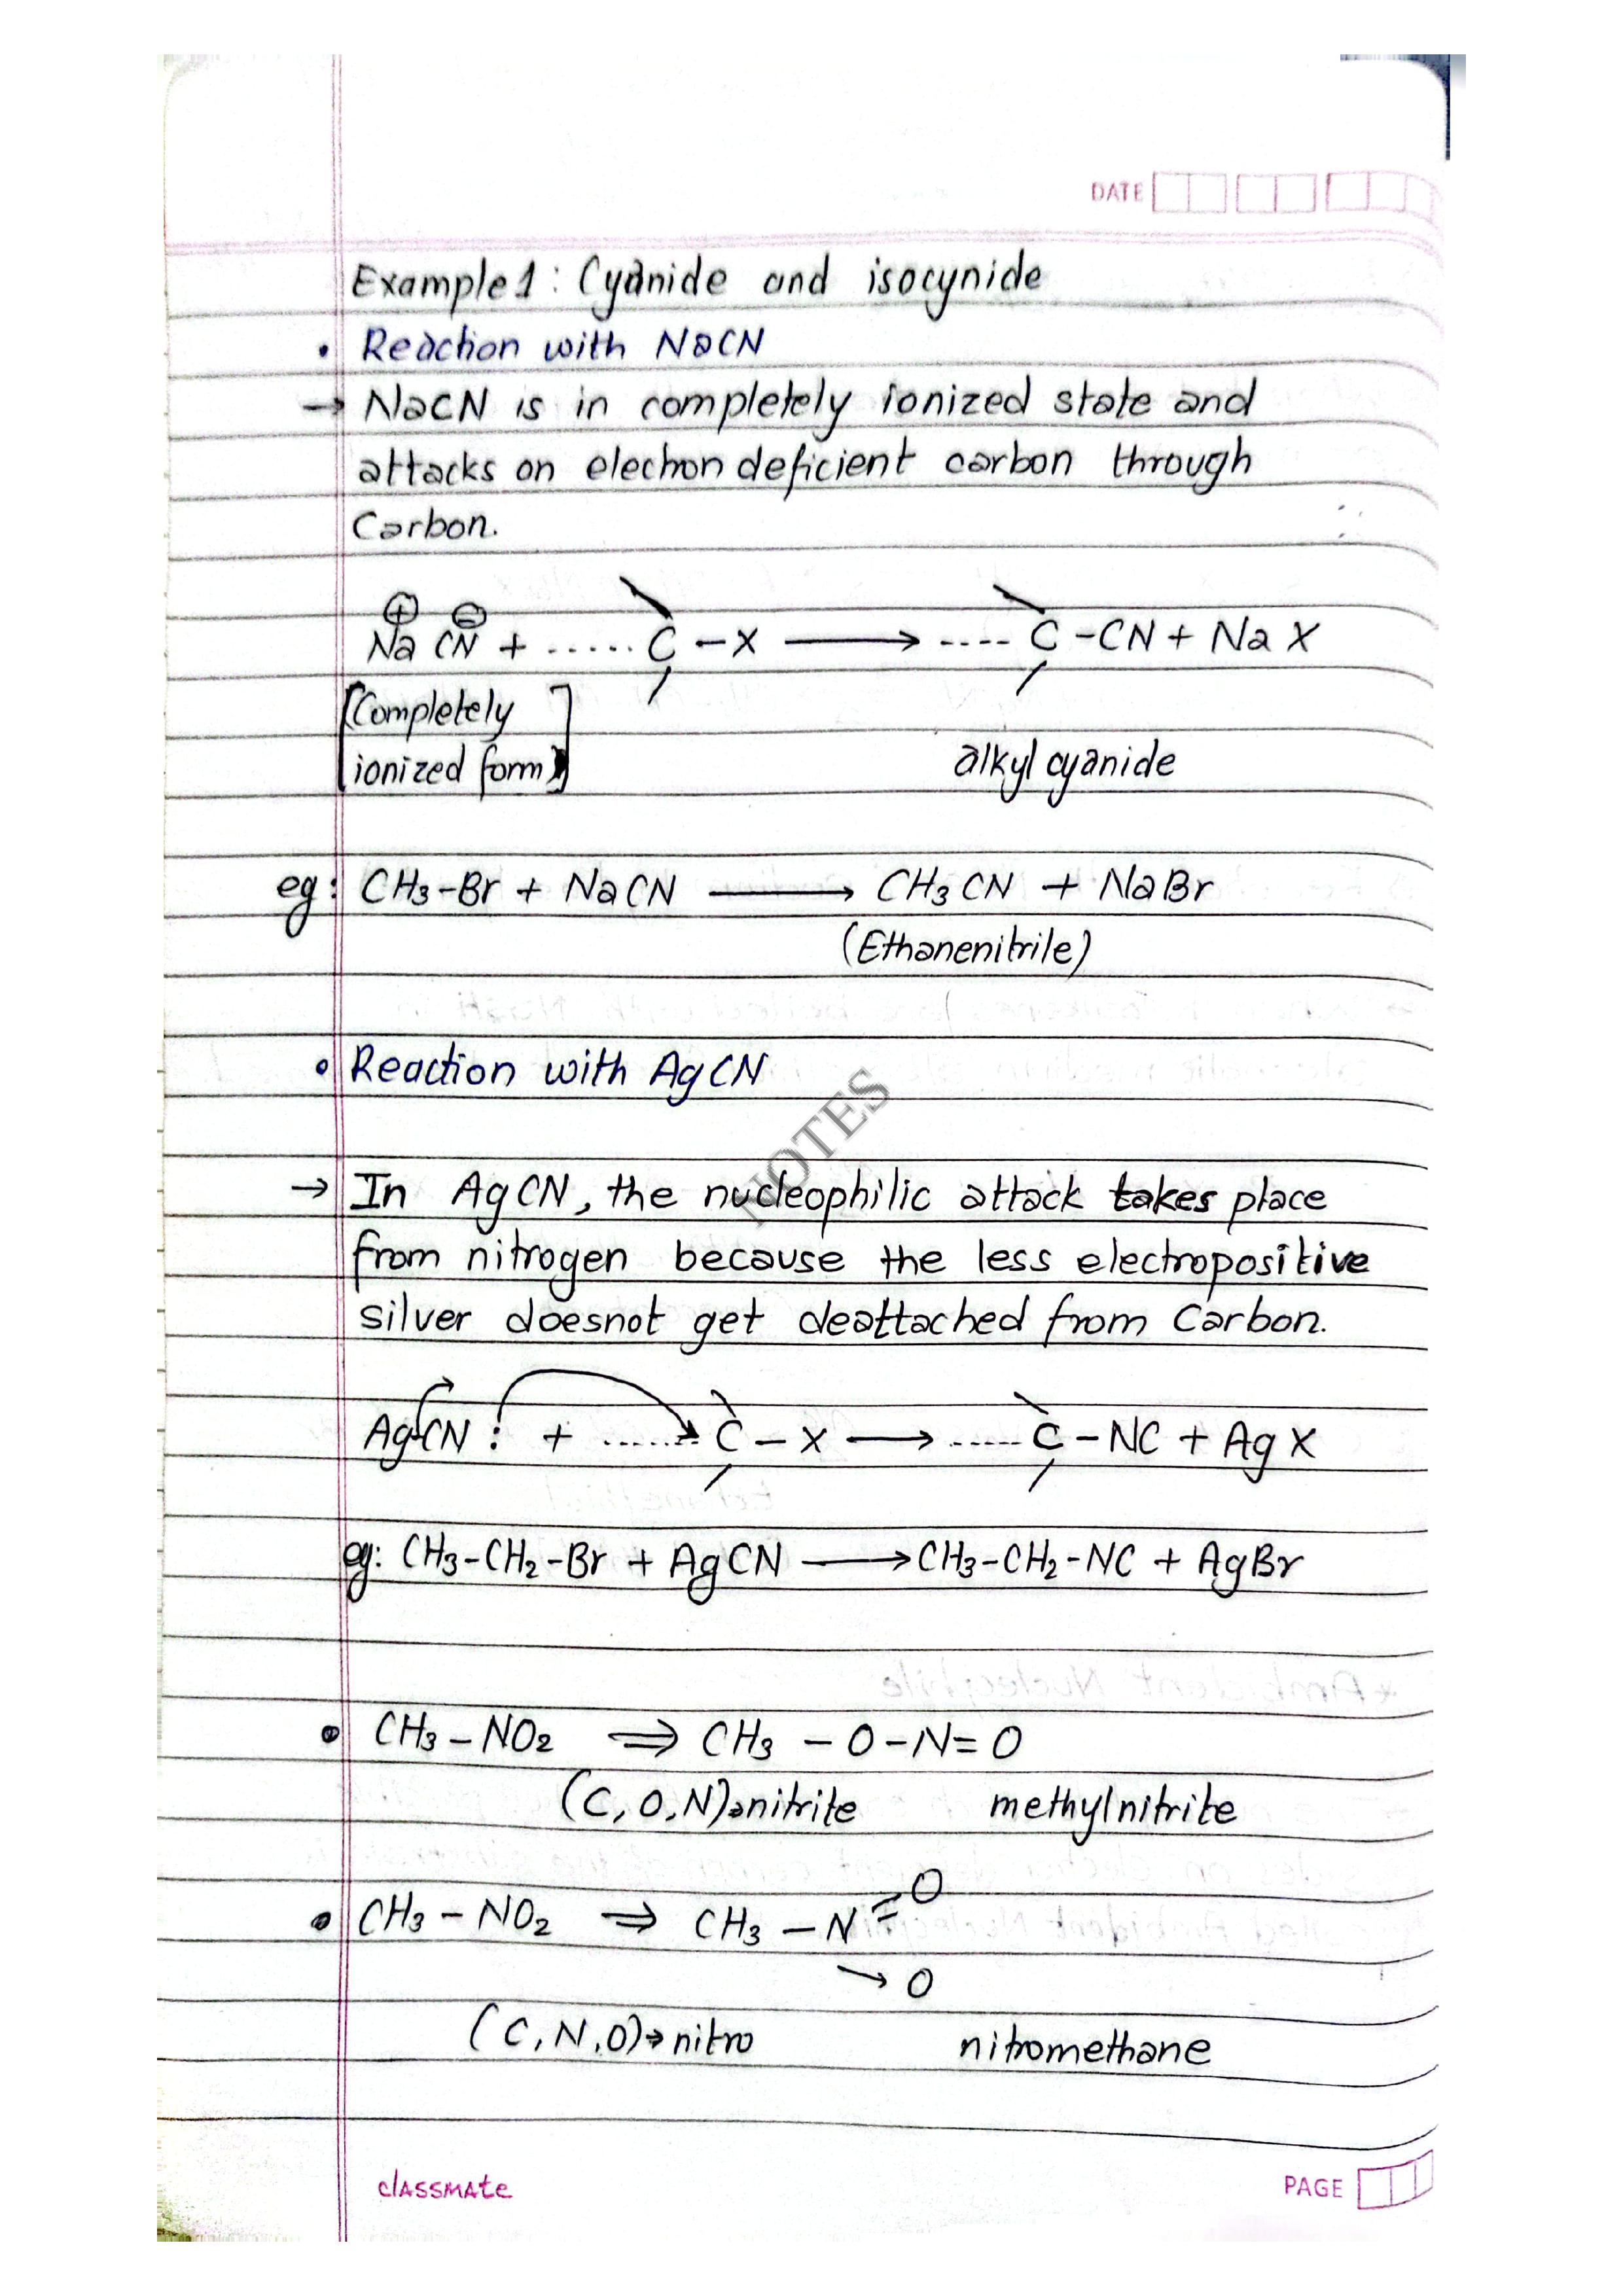 DATE
Example 1 : Cyanide and isocynide
• Reaction with NaCN
→ NaCN is in completely ionized state and
attacks on electron deficient carbon through
Carbon.
⊕ ⊖
Na CN + ...... C – X ⟶ ---- C – CN + Na X
[Completely
ionized form]
alkyl cyanide
eg: CH3-Br + NaCN ⟶ CH3 CN + NaBr
(Ethanenitrile)
• Reaction with AgCN
NOTES
→ In AgCN, the nucleophilic attack takes place
from nitrogen because the less electropositive
silver doesnot get deattached from Carbon.
Ag-CN : + ....... C – X ⟶ ...... C – NC + Ag X
eg: CH3-CH2-Br + AgCN ⟶ CH3-CH2-NC + AgBr
• CH3 – NO2 ⇒ CH3 – O – N = O
(C, O, N)→nitrite methylnitrite
• CH3 – NO2 ⇒ CH3 – N = O
→ O
(C, N, O)→ nitro nitromethane
classmate
PAGE